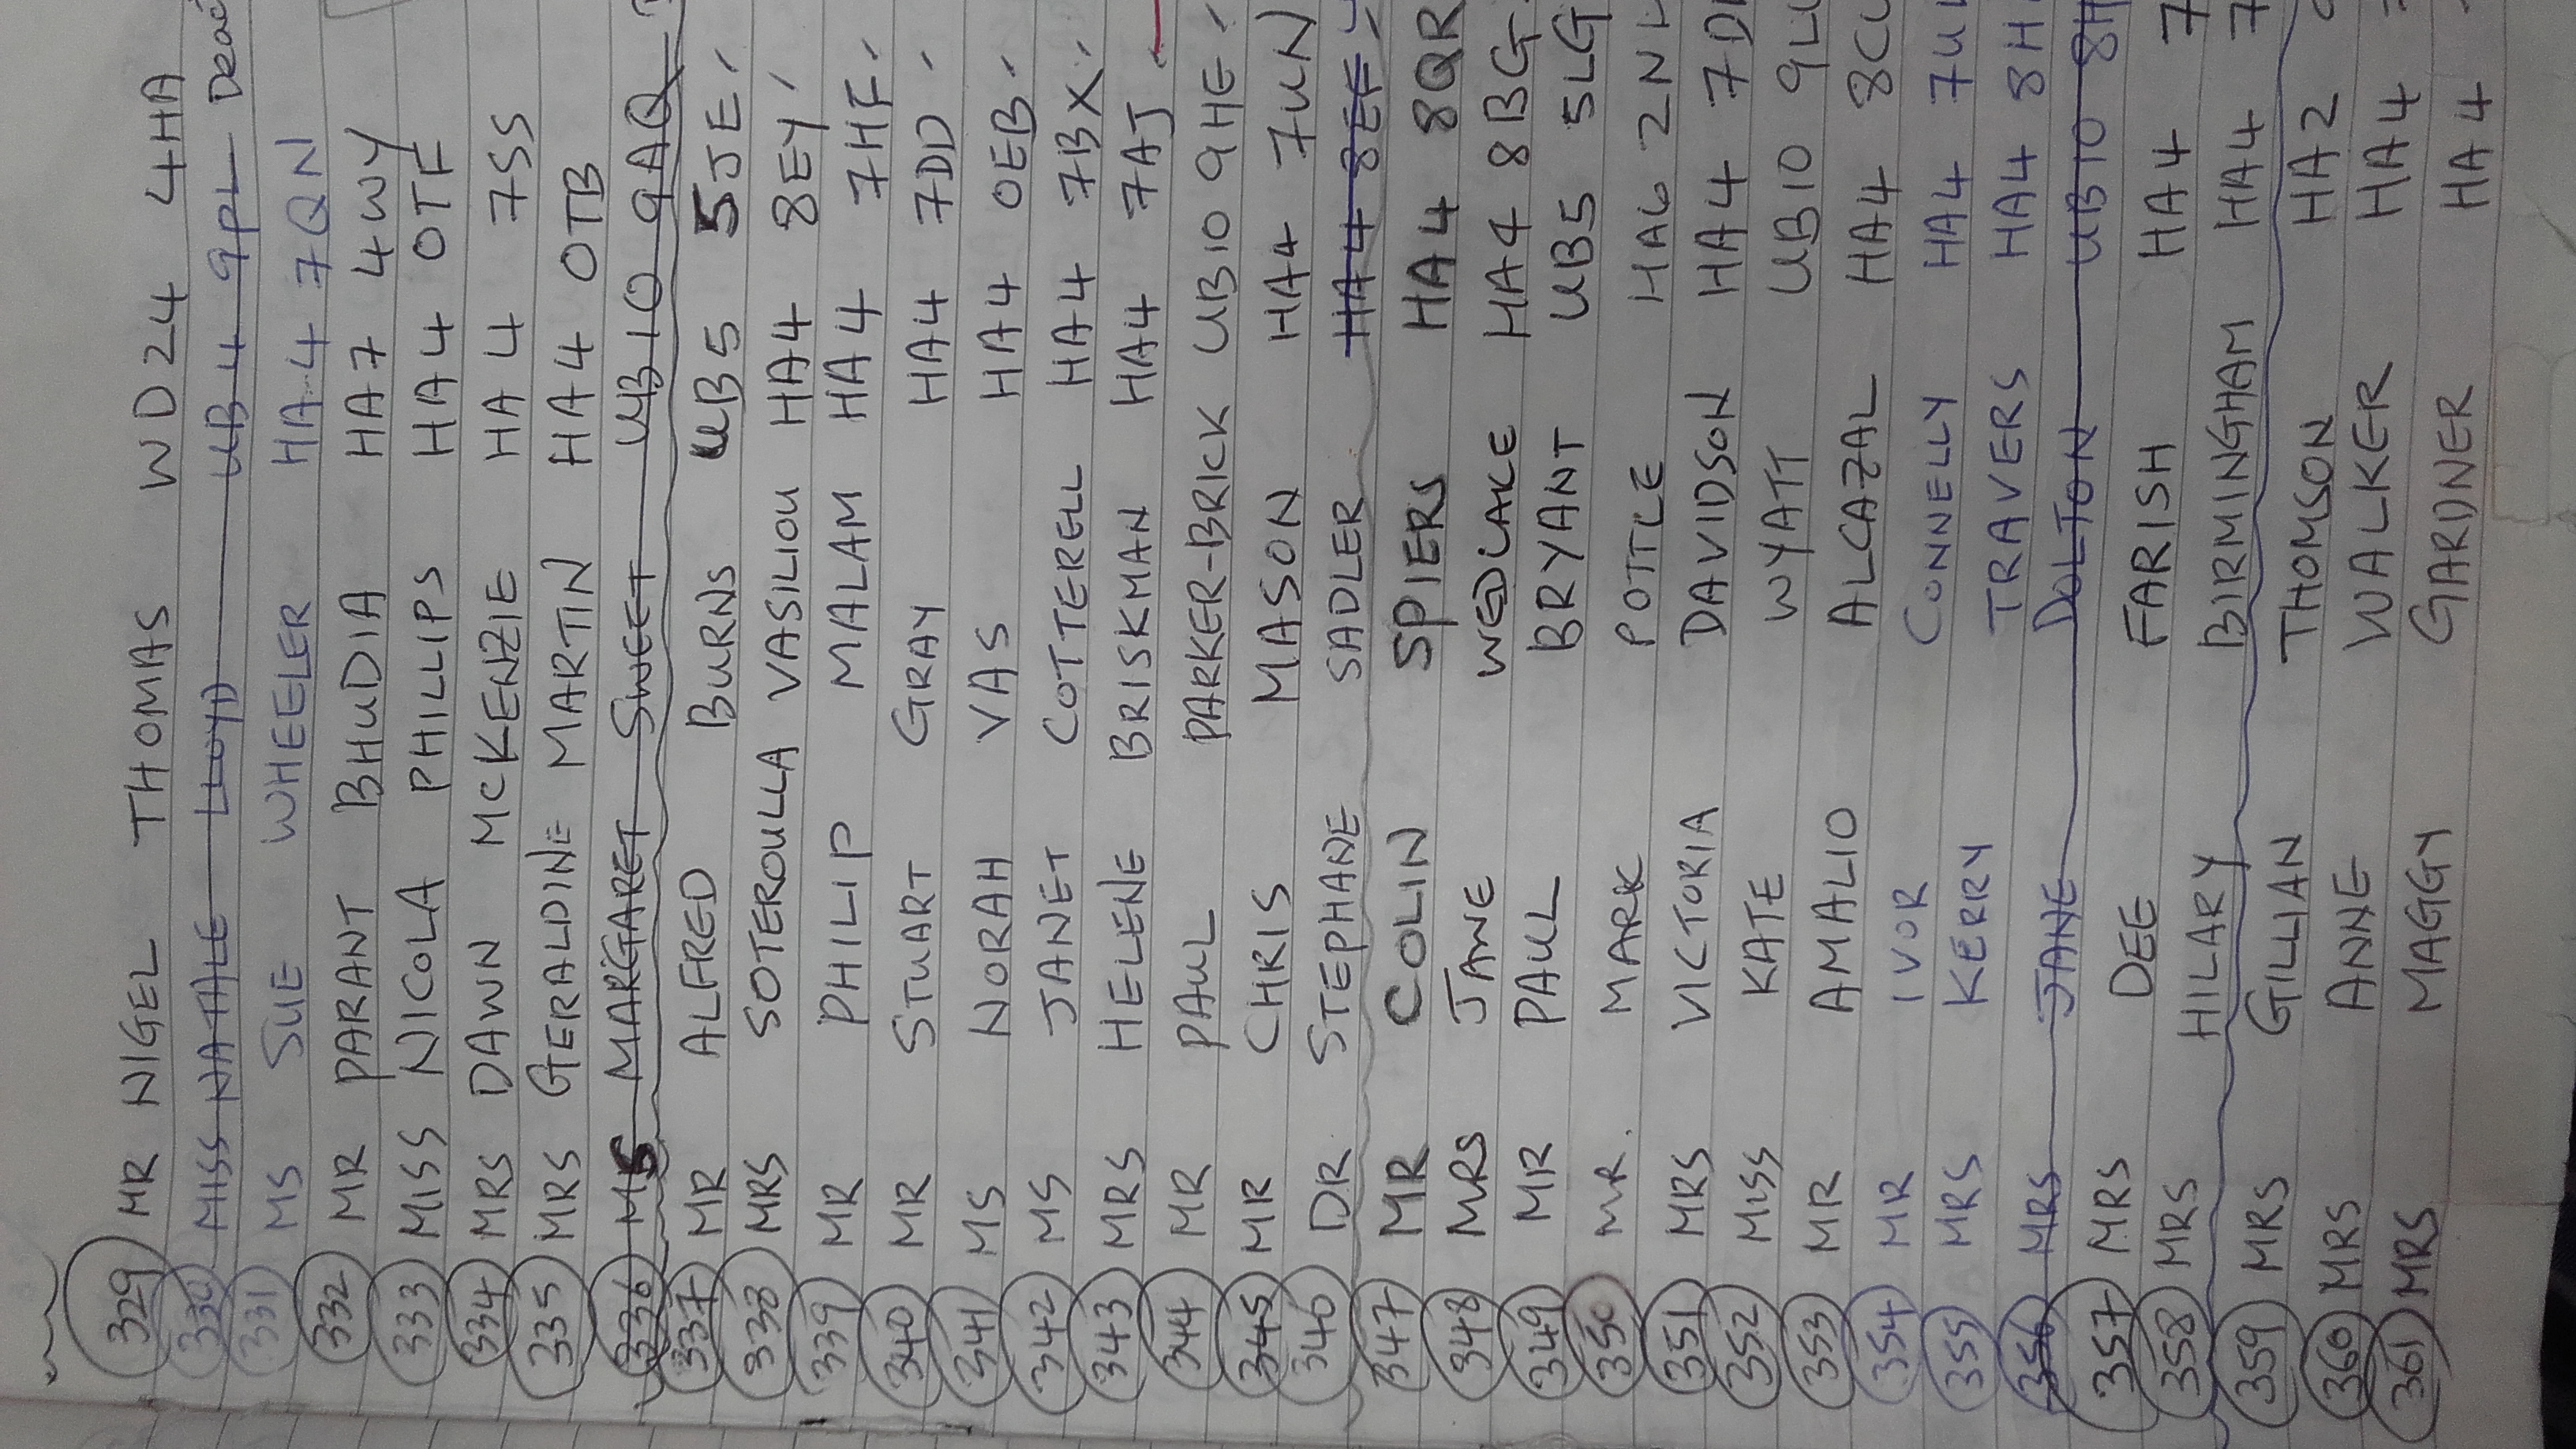 329 MR NIGEL THOMAS WD24 4HA
330 MISS NATALE LLOYD UB4 9PL Dead
331 MS SUE WHEELER HA4 7QN
332 MR PARANT BHUDIA HA7 4WY
333 MISS NICOLA PHILLIPS HA4 0TF
334 MRS DAWN MCKENZIE HA4 7SS
335 MRS GERALDINE MARTIN HA4 0TB
336 MS MARGARET SWEET UB10 9AQ
337 MR ALFRED BURNS UB5 5JE
338 MRS SOTEROULLA VASILIOU HA4 8EY
339 MR PHILIP MALAM HA4 7HF
340 MR STUART GRAY HA4 7DD
341 MS NORAH VAS HA4 0EB
342 MS JANET COTTERELL HA4 7BX
343 MRS HELENE BRISKMAN HA4 7AJ
344 MR PAUL PARKER-BRICK UB10 9HE
345 MR CHRIS MASON HA4 7UN
346 DR STEPHANE SADLER HA4 8EF
347 MR COLIN SPIERS HA4 8QR
348 MRS JANE WEDLAKE HA4 8BG
349 MR PAUL BRYANT UB5 5LG
350 MR. MARK POTTLE HA6
351 MRS VICTORIA DAVIDSON HA4
352 MISS KATE WYATT UB10
353 MR AMALIO ALCAZAL HA4
354 MR IVOR CONNELLY HA4
355 MRS KERRY TRAVERS HA4
356 MRS JANE DOLTON UB10
357 MRS DEE FARISH HA4 7
358 MRS HILARY BIRMINGHAM HA4 7
359 MRS GILLIAN THOMSON HA2
360 MRS ANNE WALKER HA4
361 MRS MAGGY GARDNER HA4